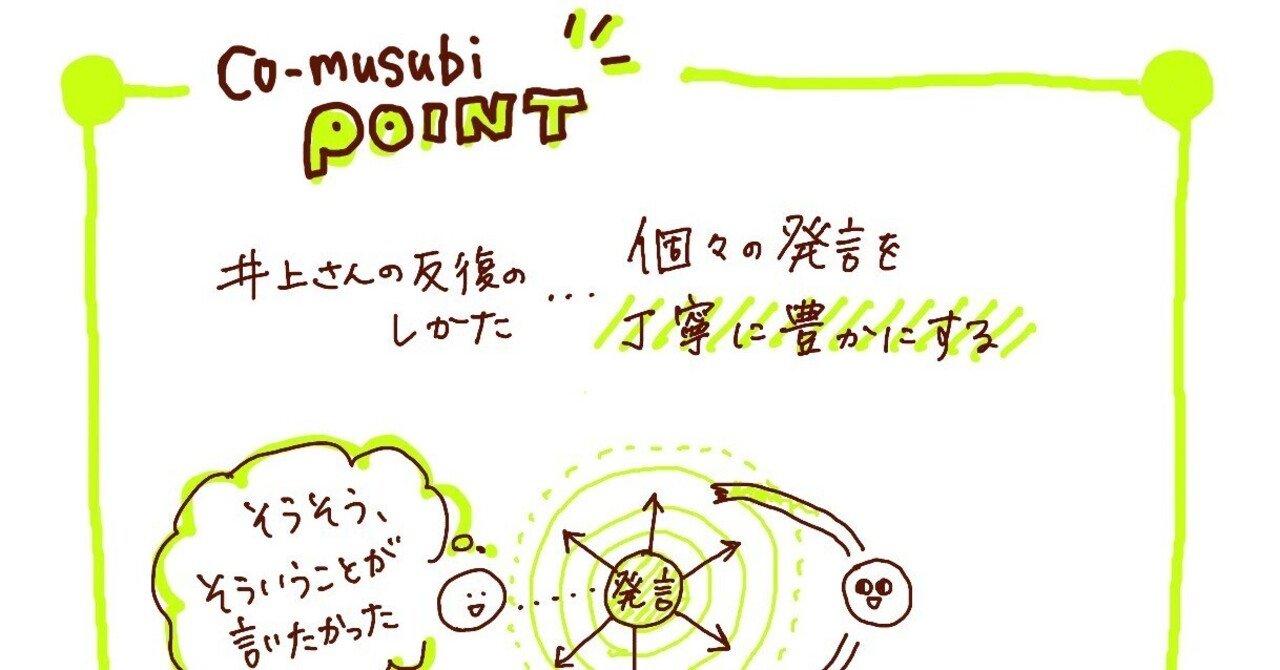 Co-musubi
POINT
井上さんの反復の
しかた
...
個々の発言を
丁寧に豊かにする
そうそう、
そういうことが
言いたかった
発言